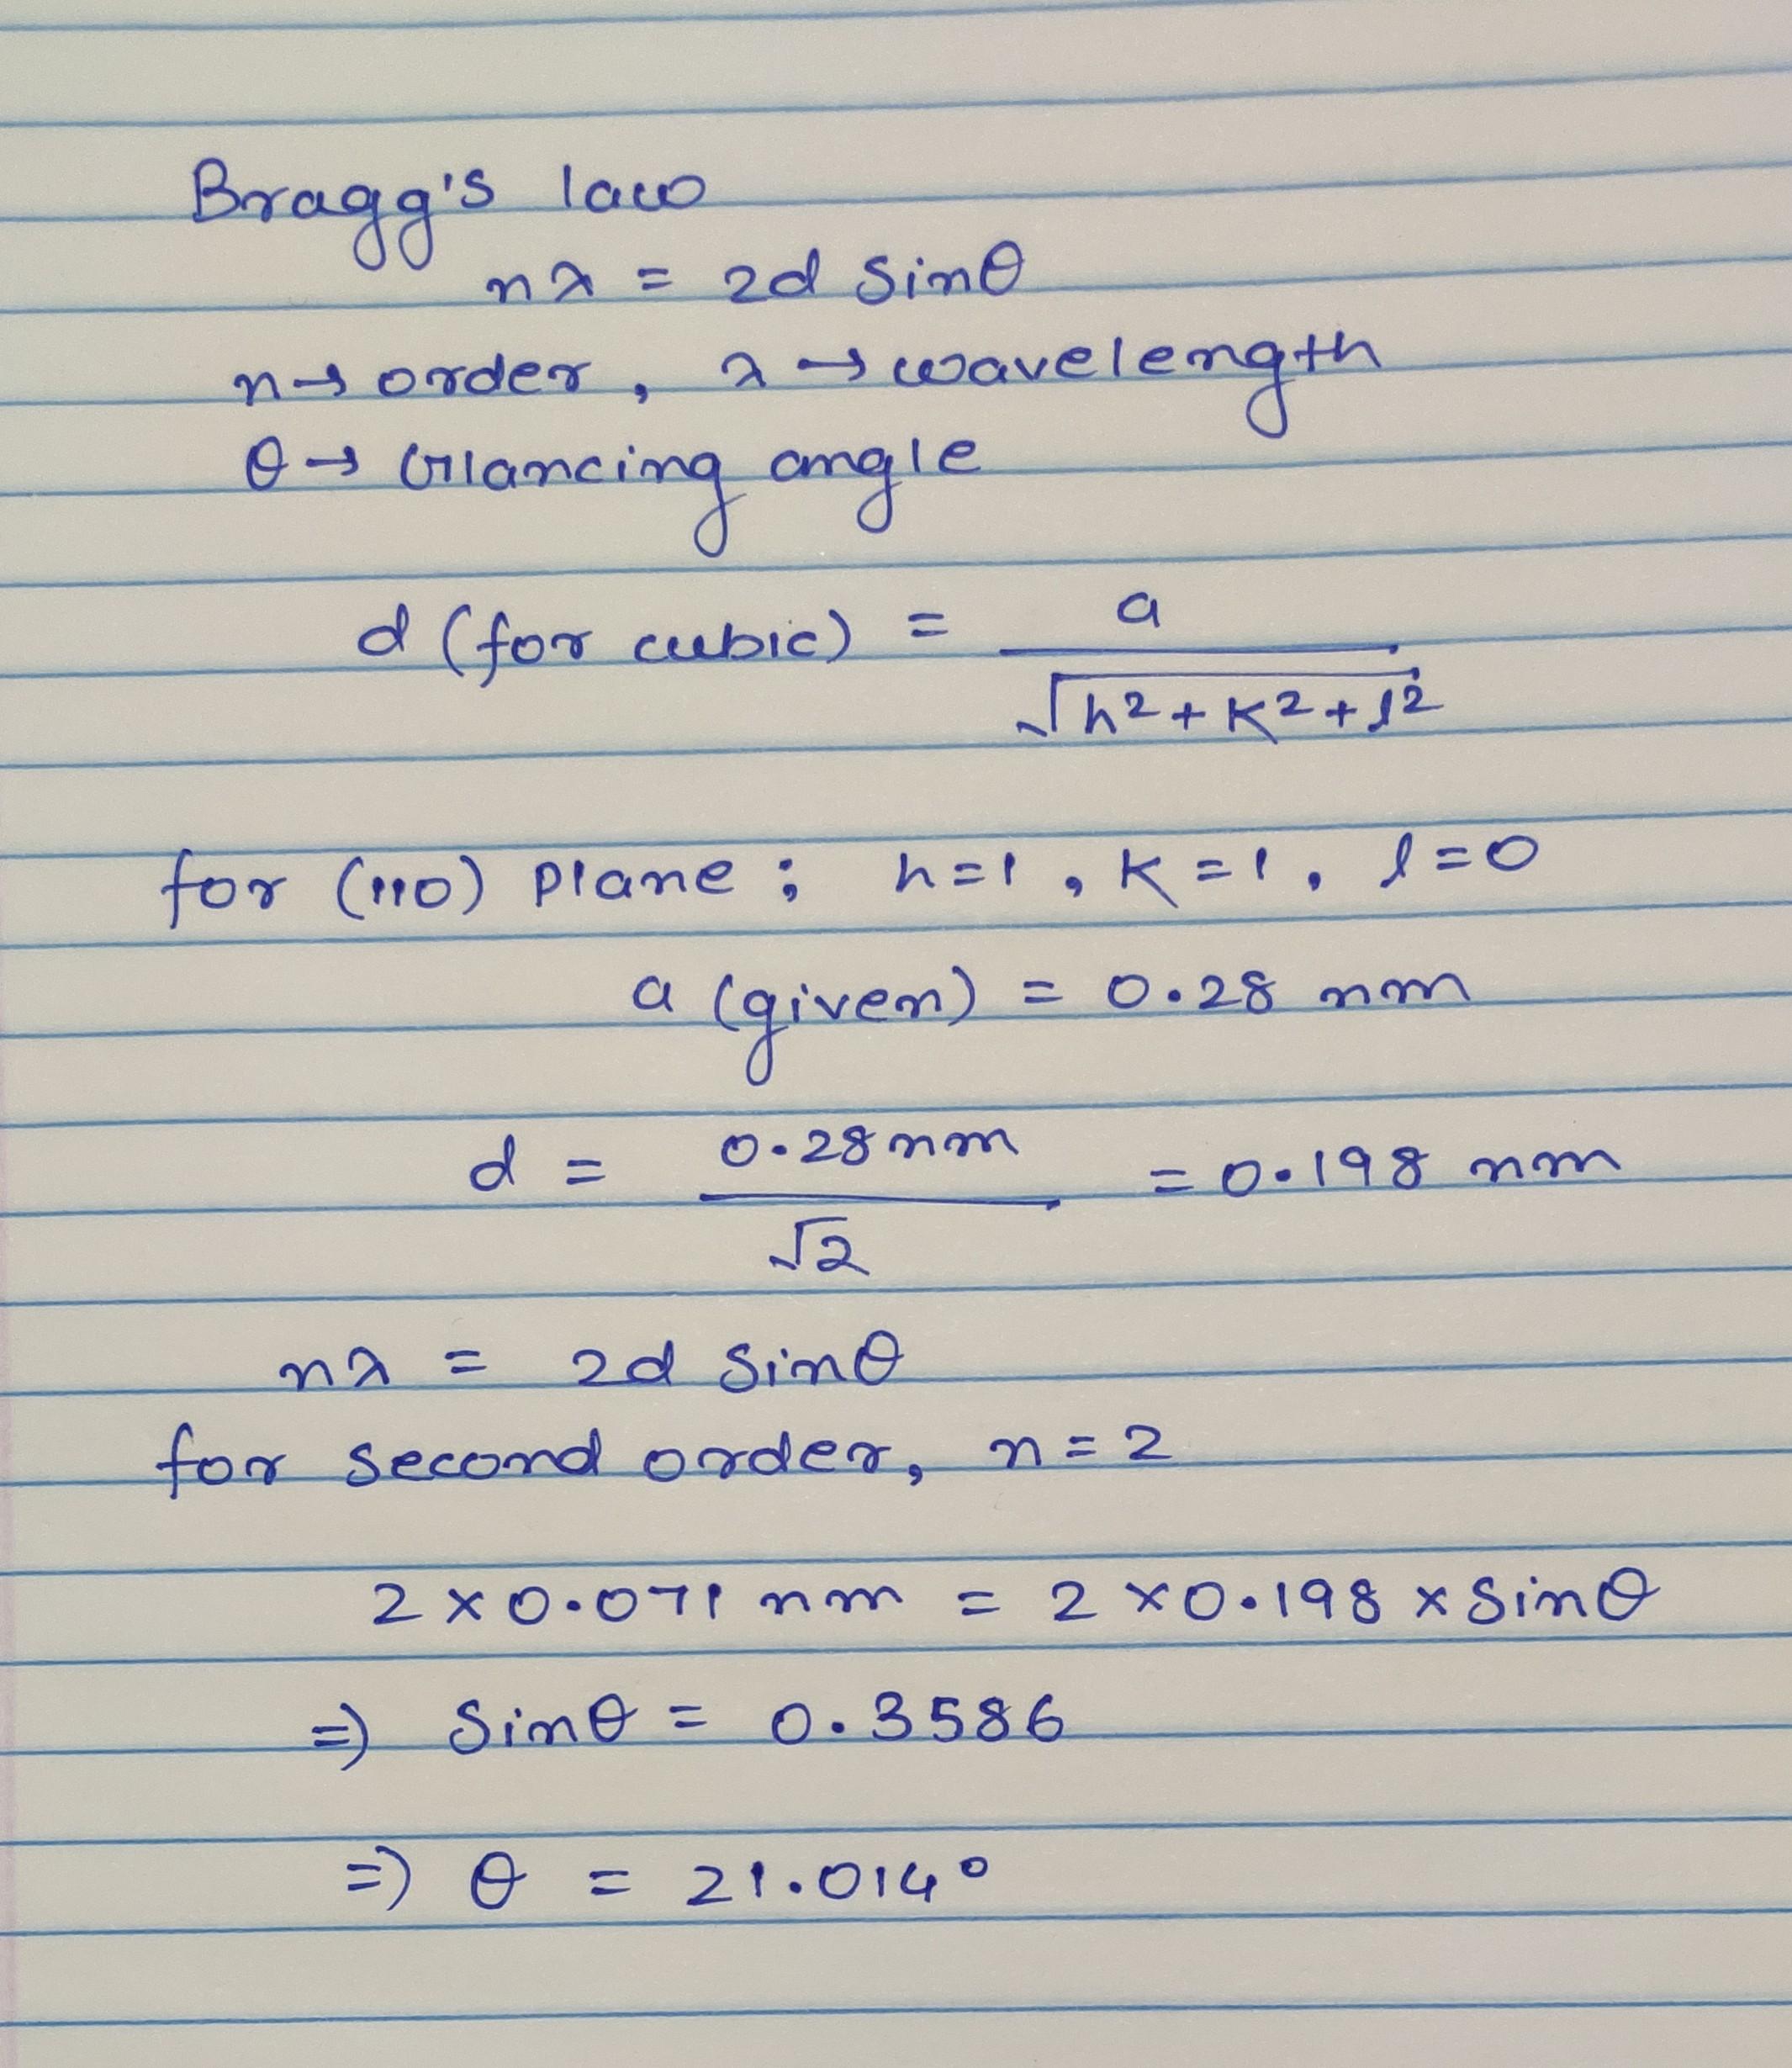 Bragg's law
nλ = 2d sinθ
n → order, λ → wavelength
θ → Glancing angle
d (for cubic) = a / √h²+k²+l²
for (110) plane; h=1, k=1, l=0
a (given) = 0.28 nm
d = 0.28 nm / √2 = 0.198 nm
nλ = 2d sinθ
for second order, n=2
2×0.071 nm = 2×0.198×sinθ
⇒ sinθ = 0.3586
⇒ θ = 21.014°